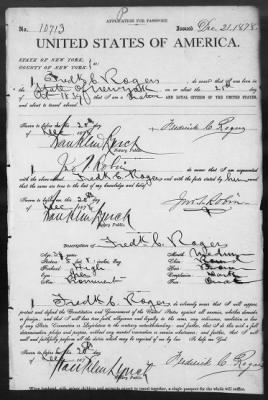 APPLICATION FOR PASSPORT.
No. 10713 Issued Dec. 21. 1878.
UNITED STATES OF AMERICA.
STATE OF NEW YORK,
COUNTY OF NEW YORK.
I, Fredk C. Rogers do swear that I was born in
the State of New York on or about the day
of that I am a AND LOYAL CITIZEN OF THE UNITED STATES,
and about to travel abroad.
Sworn to before me this 20th
day of Dec 1878
Frederick C. Rogers
Franklin Lynch
Notary Public.
I, Jno. S. Robin am acquainted
with the Fredk C. Rogers and with the facts stated by him and
that the same are true to the best of my knowledge and belief.
Sworn to before me this 20th
day of Dec 1878
Jno. S. Robin
Franklin Lynch
Notary Public.
Description of Fredk C. Rogers
Age:
Stature:
Forehead: High
Eyes:
Nose: Prominent
Mouth: Medium
Chin:
Hair: Brown
Complexion: Dark
Face: Oval
I, Fredk C. Rogers do solemnly swear that I will support,
protect and defend the Constitution and Government of the United States against all enemies, whether domestic
or foreign, and that I will bear true faith, allegiance and loyalty to the same, any ordinance, resolution or law
of any State Convention or Legislature to the contrary notwithstanding; and further, that I do this with a full
determination, pledge and purpose, without any mental reservation or evasion whatsoever; and further, that
I will well and faithfully perform all the duties which may be required of me by law. So help me God.
Sworn to before me this 20th
day of Dec 1878
Franklin Lynch
Notary Public.
Frederick C. Rogers
When husband, wife, minor children and servants expect to travel together, a single passport for the whole will suffice.